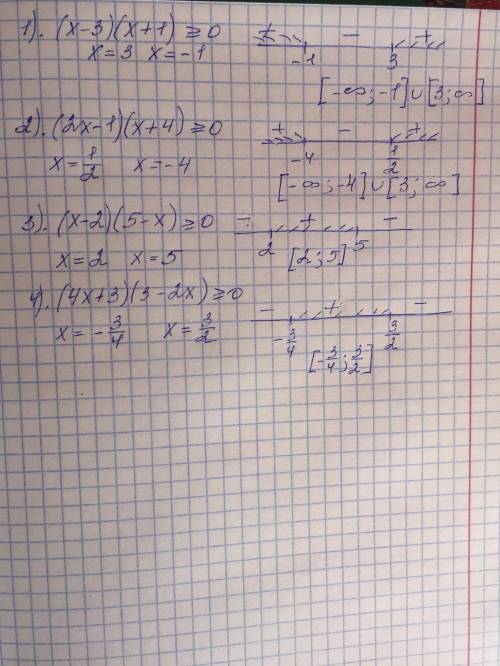 1). (x-3)(x+1) ⩾ 0
+ − +
x = 3 x = -1
-1 3
[-∞; -1] ∪ [3; ∞]
2). (2x-1)(x+4) ⩾ 0
+ − +
x = 1/2 x = -4
-4 1/2
[-∞; -4] ∪ [3; ∞]
3). (x-2)(5-x) ⩾ 0
− + −
2 5
x = 2 x = 5
[2; 5]
4). (4x+3)(3-2x) ⩾ 0
− + −
x = -3/4 x = 3/2
-3/4 3/2
[-3/4; 3/2]